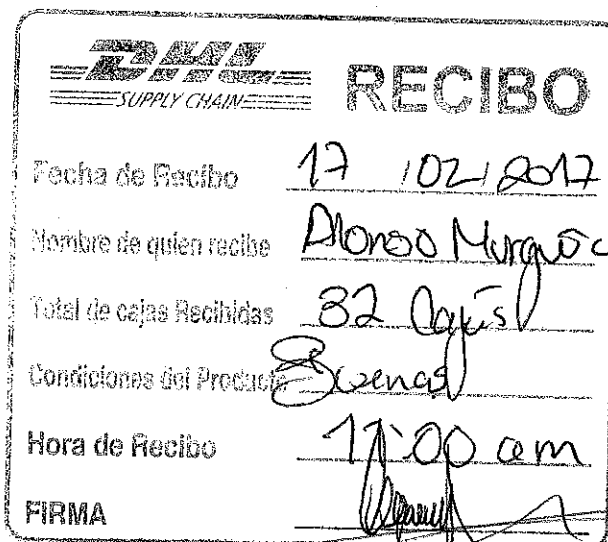 DHL RECIBO
SUPPLY CHAIN
Fecha de Recibo 17 / 02 / 2017
Nombre de quien recibe Alonso
Total de cajas Recibidas 32 Cajas
Condiciones del Producto Buenas
Hora de Recibo 11:00 am
FIRMA